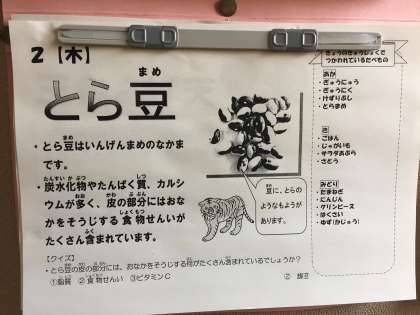 2【木】
とら豆
まめ
・とら豆はいんげんまめのなかま
です。
・炭水化物やたんぱく質、カルシ
ウムが多く、皮の部分にはおな
かをそうじする食物せんいが
たくさん含まれています。
豆に、とらの
ようなもようが
あります。
【クイズ】
・とら豆の皮の部分には、おなかをそうじする何がたくさん含まれているでしょうか？
①脂質 ②食物せんい ③ビタミンC
きょうのきゅうしょくで
つかわれているたべもの
あか
・ぎゅうにゅう
・ぎゅうにく
・けずりぶし
・とらまめ
き
・ごはん
・じゃがいも
・サラダあぶら
・さとう
みどり
・たまねぎ
・にんじん
・グリンピース
・はくさい
・ゆず(かじゅう)